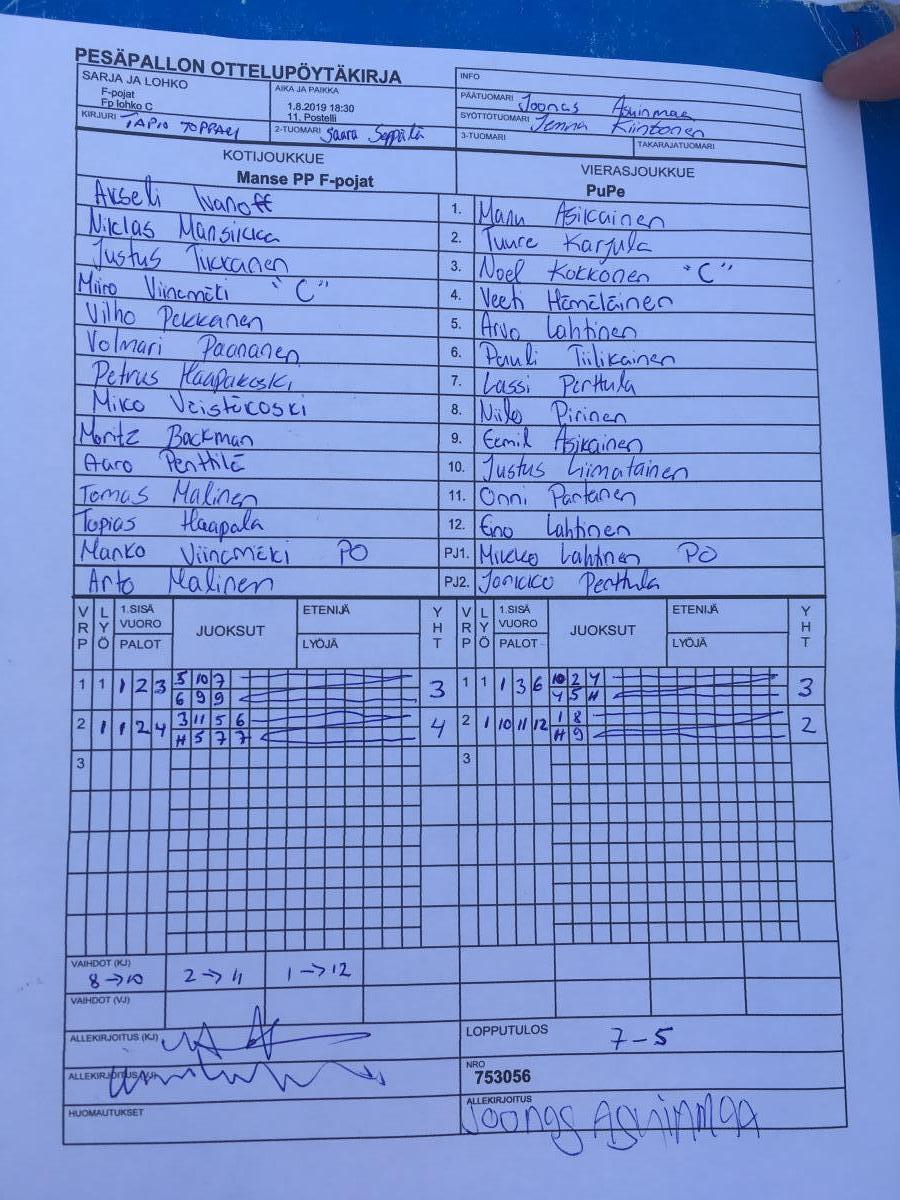 PESÄPALLON OTTELUPÖYTÄKIRJA
SARJA JA LOHKO
F-pojat
Fp lohko C
AIKA JA PAIKKA
1.8.2019 18:30
11. Postelli
INFO
PÄÄTUOMARI Joonas Asuinmaa
KIRJURI TAPIO TOPPARI
2-TUOMARI Saara Seppälä
SYÖTTÖTUOMARI Jenna Kiintonen
3-TUOMARI
TAKARAJATUOMARI
KOTIJOUKKUE
Manse PP F-pojat
VIERASJOUKKUE
PuPe
Akseli Ivanoff 1. Manu Asikainen
Niklas Mansikka 2. Tuure Karjula
Justus Tikkanen 3. Noel Kokkonen "C"
Miiro Viinamäki "C" 4. Veeti Hämäläinen
Vilho Pekkanen 5. Arvo Lahtinen
Volmari Paananen 6. Pauli Tiilikainen
Petrus Haapakoski 7. Lassi Perttula
Miko Veistäkoski 8. Niilo Pirinen
Moritz Backman 9. Eemil Asikainen
Aaro Penttilä 10. Justus Liimatainen
Tomas Malinen 11. Onni Partanen
Topias Haapala 12. Eino Lahtinen
Marko Viinamäki PO PJ1. Mikko Lahtinen PO
Arto Malinen PJ2. Jarkko Perttula
VRP LYÖ 1.SISÄ VUORO PALOT JUOKSUT ETENIJÄ LYÖJÄ YHT VRP LYÖ 1.SISÄ VUORO PALOT JUOKSUT ETENIJÄ LYÖJÄ YHT
1 1 1 2 3 5 10 7 3 1 1 1 3 6 10 2 4 3
6 9 9 4 5 H
2 1 1 2 4 3 11 5 6 4 2 1 10 11 12 1 8 2
H 5 7 7 H 9
3 3
VAIHDOT (KJ)
8→10 2→11 1→12
VAIHDOT (VJ)
ALLEKIRJOITUS (KJ)
LOPPUTULOS
7-5
ALLEKIRJOITUS (VJ)
NRO
753056
HUOMAUTUKSET
ALLEKIRJOITUS
Joonas Asuinmaa